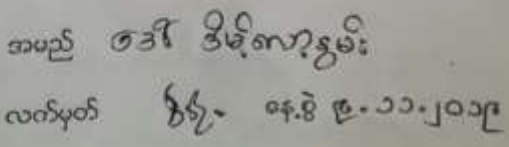 အမည် ဒေါ် ဒိမ့်လော့နွမ်း
လက်မှတ် နေ့စွဲ ၉.၁၁.၂၀၁၉